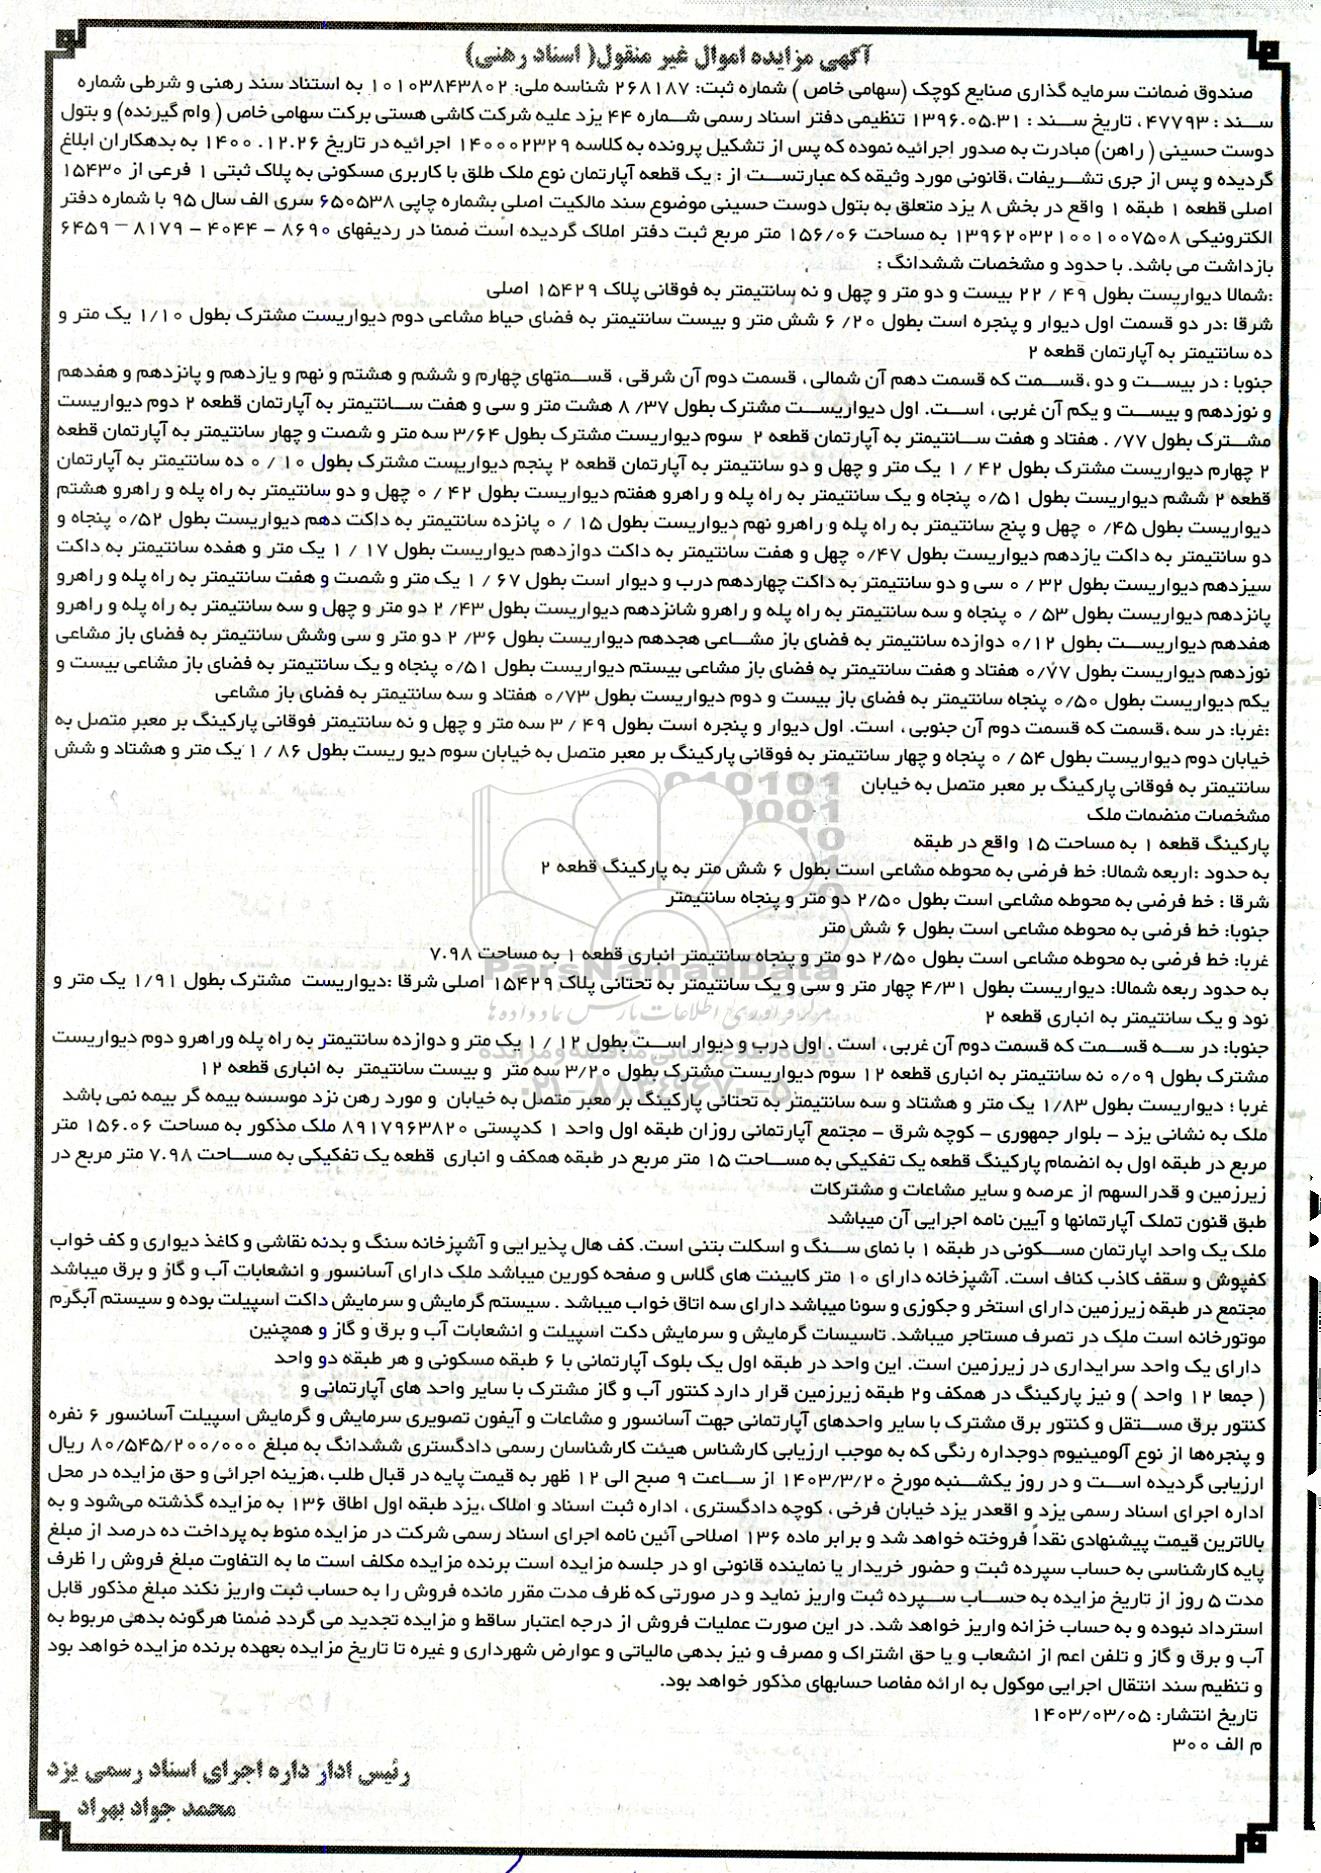 آگهی مزایده اموال غیر منقول( اسناد رهنی)
صندوق ضمانت سرمایه گذاری صنایع کوچک (سهامی خاص ) شماره ثبت: ۲۶۸۱۸۷ شناسه ملی: ۱۰۱۰۳۸۴۳۸۰۲ به استناد سند رهنی و شرطی شماره
سند : ۴۷۷۹۳ ، تاریخ سند : ۱۳۹۶.۰۵.۳۱ تنظیمی دفتر اسناد رسمی شماره ۴۴ یزد علیه شرکت کاشی هستی برکت سهامی خاص ( وام گیرنده) و بتول
دوست حسینی ( راهن) مبادرت به صدور اجرائیه نموده که پس از تشکیل پرونده به کلاسه ۱۴۰۰۰۲۳۲۹ اجرائیه در تاریخ ۱۴۰۰.۱۲.۲۶ به بدهکاران ابلاغ
گردیده و پس از جری تشریفات ،قانونی مورد وثیقه که عبارتست از : یک قطعه آپارتمان نوع ملک طلق با کاربری مسکونی به پلاک ثبتی ۱ فرعی از ۱۵۴۳۰
اصلی قطعه ۱ طبقه ۱ واقع در بخش ۸ یزد متعلق به بتول دوست حسینی موضوع سند مالکیت اصلی بشماره چاپی ۶۵۰۵۳۸ سری الف سال ۹۵ با شماره دفتر
الکترونیکی ۱۳۹۶۲۰۳۲۱۰۰۱۰۰۷۵۰۸ به مساحت ۱۵۶/۰۶ متر مربع ثبت دفتر املاک گردیده است ضمنا در ردیفهای ۸۶۹۰ - ۴۰۴۴ - ۸۱۷۹ – ۶۴۵۹
بازداشت می باشد. با حدود و مشخصات ششدانگ :
:شمالا دیواریست بطول ۴۹ / ۲۲ بیست و دو متر و چهل و نه سانتیمتر به فوقانی پلاک ۱۵۴۲۹ اصلی
شرقا :در دو قسمت اول دیوار و پنجره است بطول ۲۰/ ۶ شش متر و بیست سانتیمتر به فضای حیاط مشاعی دوم دیواریست مشترک بطول ۱/۱۰ یک متر و
ده سانتیمتر به آپارتمان قطعه ۲
جنوبا : در بیست و دو ،قسمت که قسمت دهم آن شمالی ، قسمت دوم آن شرقی ، قسمتهای چهارم و ششم و هشتم و نهم و یازدهم و پانزدهم و هفدهم
و نوزدهم و بیست و یکم آن غربی ، است. اول دیواریست مشترک بطول ۳۷/ ۸ هشت متر و سی و هفت سانتیمتر به آپارتمان قطعه ۲ دوم دیواریست
مشترک بطول ۷۷/ ۰ هفتاد و هفت سانتیمتر به آپارتمان قطعه ۲ سوم دیواریست مشترک بطول ۳/۶۴ سه متر و شصت و چهار سانتیمتر به آپارتمان قطعه
۲ چهارم دیواریست مشترک بطول ۴۲ / ۱ یک متر و چهل و دو سانتیمتر به آپارتمان قطعه ۲ پنجم دیواریست مشترک بطول ۱۰ / ۰ ده سانتیمتر به آپارتمان
قطعه ۲ ششم دیواریست بطول ۰/۵۱ پنجاه و یک سانتیمتر به راه پله و راهرو هفتم دیواریست بطول ۴۲ / ۰ چهل و دو سانتیمتر به راه پله و راهرو هشتم
دیواریست بطول ۴۵/ ۰ چهل و پنج سانتیمتر به راه پله و راهرو نهم دیواریست بطول ۱۵ / ۰ پانزده سانتیمتر به داکت دهم دیواریست بطول ۰/۵۲ پنجاه و
دو سانتیمتر به داکت یازدهم دیواریست بطول ۰/۴۷ چهل و هفت سانتیمتر به داکت دوازدهم دیواریست بطول ۱۷ / ۱ یک متر و هفده سانتیمتر به داکت
سیزدهم دیواریست بطول ۳۲ / ۰ سی و دو سانتیمتر به داکت چهاردهم درب و دیوار است بطول ۶۷ / ۱ یک متر و شصت و هفت سانتیمتر به راه پله و راهرو
پانزدهم دیواریست بطول ۵۳ / ۰ پنجاه و سه سانتیمتر به راه پله و راهرو شانزدهم دیواریست بطول ۴۳/ ۲ دو متر و چهل و سه سانتیمتر به راه پله و راهرو
هفدهم دیواریست بطول ۰/۱۲ دوازده سانتیمتر به فضای باز مشاعی هجدهم دیواریست بطول ۳۶/ ۲ دو متر و سی وشش سانتیمتر به فضای باز مشاعی
نوزدهم دیواریست بطول ۰/۷۷ هفتاد و هفت سانتیمتر به فضای باز مشاعی بیستم دیواریست بطول ۰/۵۱ پنجاه و یک سانتیمتر به فضای باز مشاعی بیست و
یکم دیواریست بطول ۰/۵۰ پنجاه سانتیمتر به فضای باز بیست و دوم دیواریست بطول ۰/۷۳ هفتاد و سه سانتیمتر به فضای باز مشاعی
:غربا: در سه ،قسمت که قسمت دوم آن جنوبی ، است. اول دیوار و پنجره است بطول ۴۹ / ۳ سه متر و چهل و نه سانتیمتر فوقانی پارکینگ بر معبر متصل به
خیابان دوم دیواریست بطول ۵۴ / ۰ پنجاه و چهار سانتیمتر به فوقانی پارکینگ بر معبر متصل به خیابان سوم دیو ریست بطول ۸۶ / ۱ یک متر و هشتاد و شش
سانتیمتر به فوقانی پارکینگ بر معبر متصل به خیابان
مشخصات منضمات ملک
پارکینگ قطعه ۱ به مساحت ۱۵ واقع در طبقه
به حدود :اربعه شمالا: خط فرضی به محوطه مشاعی است بطول ۶ شش متر به پارکینگ قطعه ۲
شرقا : خط فرضی به محوطه مشاعی است بطول ۲/۵۰ دو متر و پنجاه سانتیمتر
جنوبا: خط فرضی به محوطه مشاعی است بطول ۶ شش متر
غربا: خط فرضی به محوطه مشاعی است بطول ۲/۵۰ دو متر و پنجاه سانتیمتر انباری قطعه ۱ به مساحت ۷.۹۸
به حدود ربعه شمالا: دیواریست بطول ۴/۳۱ چهار متر و سی و یک سانتیمتر به تحتانی پلاک ۱۵۴۲۹ اصلی شرقا :دیواریست مشترک بطول ۱/۹۱ یک متر و
نود و یک سانتیمتر به انباری قطعه ۲
جنوبا: در سه قسمت که قسمت دوم آن غربی ، است . اول درب و دیوار است بطول ۱۲ / ۱ یک متر و دوازده سانتیمتر به راه پله وراهرو دوم دیواریست
مشترک بطول ۰/۰۹ نه سانتیمتر به انباری قطعه ۱۲ سوم دیواریست مشترک بطول ۳/۲۰ سه متر و بیست سانتیمتر به انباری قطعه ۱۲
غربا ؛ دیواریست بطول ۱/۸۳ یک متر و هشتاد و سه سانتیمتر به تحتانی پارکینگ بر معبر متصل به خیابان و مورد رهن نزد موسسه بیمه گر بیمه نمی باشد
ملک به نشانی یزد - بلوار جمهوری - کوچه شرق - مجتمع آپارتمانی روزان طبقه اول واحد ۱ کدپستی ۸۹۱۷۹۶۳۸۲۰ ملک مذکور به مساحت ۱۵۶.۰۶ متر
مربع در طبقه اول به انضمام پارکینگ قطعه یک تفکیکی به مساحت ۱۵ متر مربع در طبقه همکف و انباری قطعه یک تفکیکی به مساحت ۷.۹۸ متر مربع در
زیرزمین و قدرالسهم از عرصه و سایر مشاعات و مشترکات
طبق قنون تملک آپارتمانها و آیین نامه اجرایی آن میباشد
ملک یک واحد اپارتمان مسکونی در طبقه ۱ با نمای سنگ و اسکلت بتنی است. کف هال پذیرایی و آشپزخانه سنگ و بدنه نقاشی و کاغذ دیواری و کف خواب
کفپوش و سقف کاذب کناف است. آشپزخانه دارای ۱۰ متر کابینت های گلاس و صفحه کورین میباشد ملک دارای آسانسور و انشعابات آب و گاز و برق میباشد
مجتمع در طبقه زیرزمین دارای استخر و جکوزی و سونا میباشد دارای سه اتاق خواب میباشد . سیستم گرمایش و سرمایش داکت اسپیلت بوده و سیستم آبگرم
موتورخانه است ملک در تصرف مستاجر میباشد. تاسیسات گرمایش و سرمایش دکت اسپیلت و انشعابات آب و برق و گاز و همچنین
دارای یک واحد سرایداری در زیرزمین است. این واحد در طبقه اول یک بلوک آپارتمانی با ۶ طبقه مسکونی و هر طبقه دو واحد
( جمعا ۱۲ واحد ) و نیز پارکینگ در همکف و۲ طبقه زیرزمین قرار دارد کنتور آب و گاز مشترک با سایر واحد های آپارتمانی و
کنتور برق مستقل و کنتور برق مشترک با سایر واحدهای آپارتمانی جهت آسانسور و مشاعات و آیفون تصویری سرمایش و گرمایش اسپیلت آسانسور ۶ نفره
و پنجره‌ها از نوع آلومینیوم دوجداره رنگی که به موجب ارزیابی کارشناس هیئت کارشناسان رسمی دادگستری ششدانگ به مبلغ ۸۰/۵۴۵/۲۰۰/۰۰۰ ریال
ارزیابی گردیده است و در روز یکشنبه مورخ ۱۴۰۳/۳/۲۰ از ساعت ۹ صبح الی ۱۲ ظهر به قیمت پایه در قبال طلب ،هزینه اجرائی و حق مزایده در محل
اداره اجرای اسناد رسمی یزد و اقعدر یزد خیابان فرخی ، کوچه دادگستری ، اداره ثبت اسناد و املاک ،یزد طبقه اول اطاق ۱۳۶ به مزایده گذشته می‌شود و به
بالاترین قیمت پیشنهادی نقداً فروخته خواهد شد و برابر ماده ۱۳۶ اصلاحی آئین نامه اجرای اسناد رسمی شرکت در مزایده منوط به پرداخت ده درصد از مبلغ
پایه کارشناسی به حساب سپرده ثبت و حضور خریدار یا نماینده قانونی او در جلسه مزایده است برنده مزایده مکلف است ما به التفاوت مبلغ فروش را ظرف
مدت ۵ روز از تاریخ مزایده به حساب سپرده ثبت واریز نماید و در صورتی که ظرف مدت مقرر مانده فروش را به حساب ثبت واریز نکند مبلغ مذکور قابل
استرداد نبوده و به حساب خزانه واریز خواهد شد. در این صورت عملیات فروش از درجه اعتبار ساقط و مزایده تجدید می گردد ضمنا هرگونه بدهی مربوط به
آب و برق و گاز و تلفن اعم از انشعاب و یا حق اشتراک و مصرف و نیز بدهی مالیاتی و عوارض شهرداری و غیره تا تاریخ مزایده بعهده برنده مزایده خواهد بود
و تنظیم سند انتقال اجرایی موکول به ارائه مفاصا حسابهای مذکور خواهد بود.
تاریخ انتشار: ۱۴۰۳/۰۳/۰۵
م الف ۳۰۰
رئیس ادار داره اجرای اسناد رسمی یزد
محمد جواد بهراد
ParsNamadData
مرکز فرآوری اطلاعات پارس نماد داده‌ها
پایگاه اطلاع رسانی مناقصه و مزایده